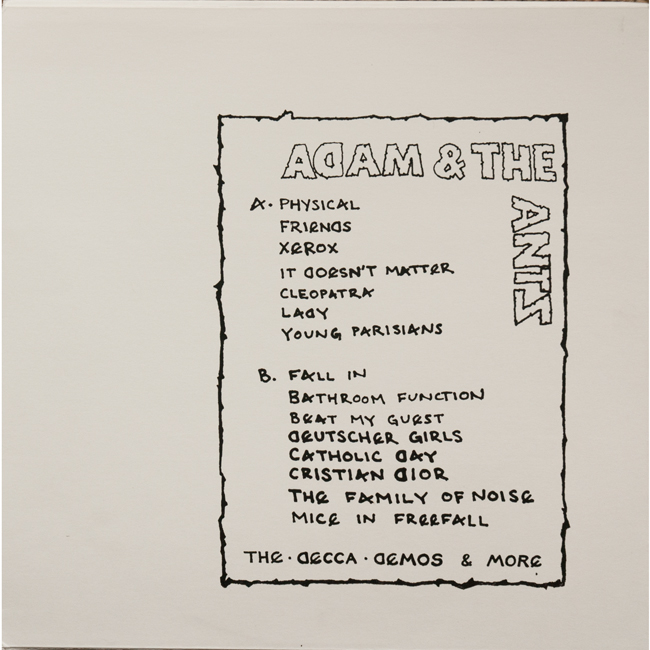 ADAM & THE
ANTS
A. PHYSICAL
FRIENDS
XEROX
IT DOESN'T MATTER
CLEOPATRA
LADY
YOUNG PARISIANS
B. FALL IN
BATHROOM FUNCTION
BEAT MY GUEST
DEUTSCHER GIRLS
CATHOLIC DAY
CRISTIAN DIOR
THE FAMILY OF NOISE
MICE IN FREEFALL
THE · DECCA · DEMOS & MORE